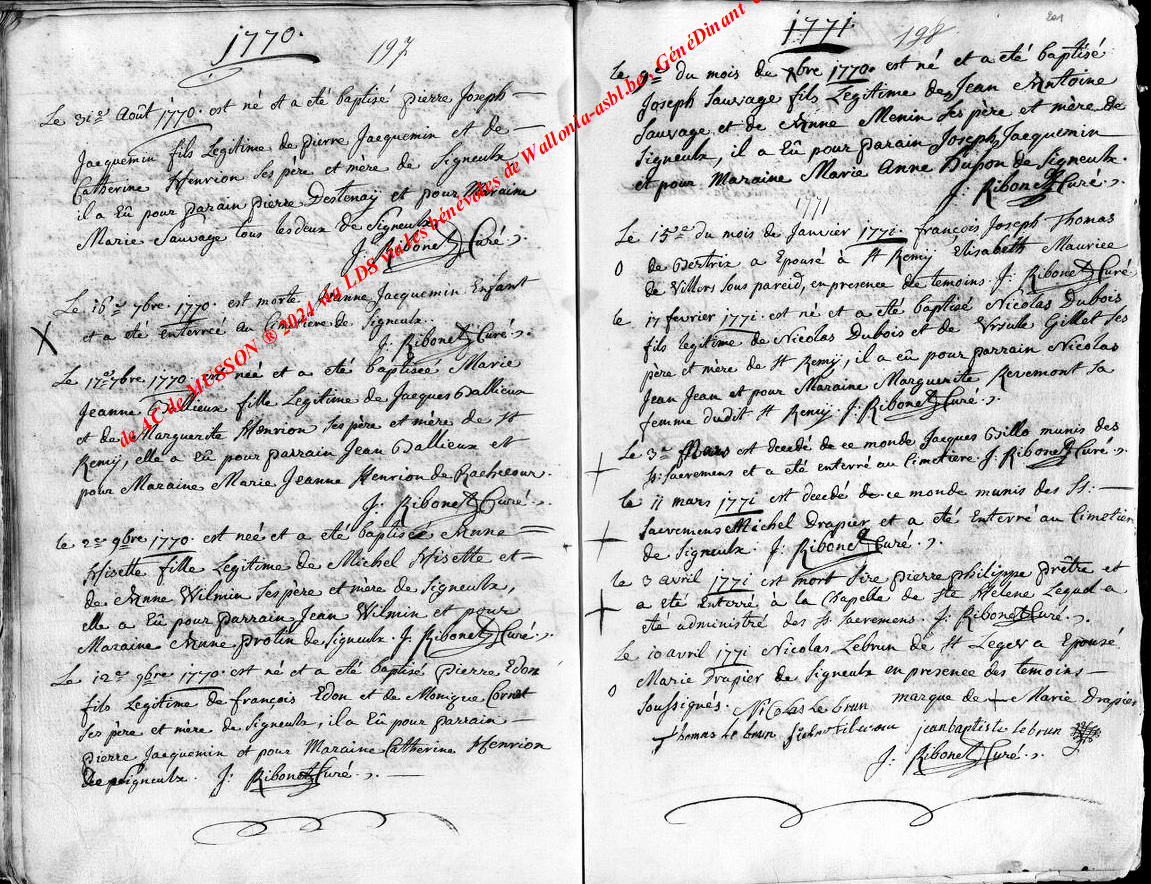 1770.
197
Le 31e Août 1770. est né et a été baptisé pierre Joseph
Jacquemin fils Legitime de pierre Jacquemin et de
Catherine Henrion Ses père et mère de Signeulx
il a Eû pour parain pierre Destenaÿ et pour Maraine
Marie Sauvage tous les deux de Signeulx
J: Ribonet Curé.
Le 16e 7bre 1770. est morte Jeanne Jacquemin Enfant
et a été enterreé au Cimetiere de Signeulx.
J. Ribonet Curé.
Le 17e 7bre 1770. est neé et a été baptisée Marie
Jeanne Gallieux fille Legitime de Jacques Gallieux
et de Marguerite Henrion Ses père et mère de St
Remÿ, elle a Eû pour parrain Jean Gallieux et
pour Maraine Marie Jeanne Henrion de Rachecour.
J. Ribonet Curé.
Le 2e 9bre 1770. est neé et a été baptisée Anne
Hisette fille Legitime de Michel Hisette et
de Anne Wilmin Ses père et mère de Signeulx,
elle a Eû pour parrain Jean Wilmin et pour
Maraine Anne protin de Signeulx. J. Ribonet Curé.
Le 12e 9bre 1770. est né et a été baptisé pierre Edon
fils Legitime de françois Edon et de Monique Cornet
Ses père et mère de Signeulx, il a Eû pour parrain
pierre Jacquemin et pour Maraine Catherine Henrion
de Signeulx. J: Ribonet Curé.
1771.
198
201
Le 9e du mois du xbre 1770. est né et a été baptisé
Joseph Sauvage fils Legitime de Jean Antoine
Sauvage et de Anne Menin Ses père et mère de
Signeulx, il a Eû pour parain Joseph Jacquemin
et pour Maraine Marie Anne Dupon de Signeulx.
J: Ribonet Curé.
1771
Le 15e du mois de Janvier 1771. françois Joseph Thomas
de Bertrix a Epousé à St Remÿ Elisabeth Maurice
de Villers Sous pareid, en presence de temoins. J: Ribonet Curé
le 17 fevrier 1771. est né et a été baptisé Nicolas Dubois
fils legitime de Nicolas Dubois et de Ursule Gillet Ses
père et mère de St Remÿ, il a Eû pour parrain Nicolas
Jean Jean et pour Maraine Marguerite Revemont Sa
femme dudit St Remÿ. J: Ribonet Curé.
Le 3e Mars est decedé de ce monde Jacques Gillo munis des
Ss: Sacremens et a été enterré au Cimetiere. J. Ribonet Curé.
le 11 mars 1771 est decedé de ce monde munis des Ss.
Sacremens Michel Drapier et a été Enterré au Cimetier
de Signeulx. J: Ribonet Curé.
le 3 avril 1771 est mort Sire pierre philippe prêtre et
a été enterré à la Chapelle de Ste Helene Lequel a
été administré des Ss. Sacremens. J: Ribonet Curé.
Le 10 avril 1771 Nicolas Lebrun de St Leger a Epousé
Marie Drapier de Signeulx en presence des temoins
Soussignés. Nicolas Le brun marque de + Marie Drapier
thomas Le brun jean baptiste Lebrun
J. Ribonet Curé.
de AC de MUSSON ® 2024 via LDS via les bénévoles de Wallonia-asbl.be, GénéDinant